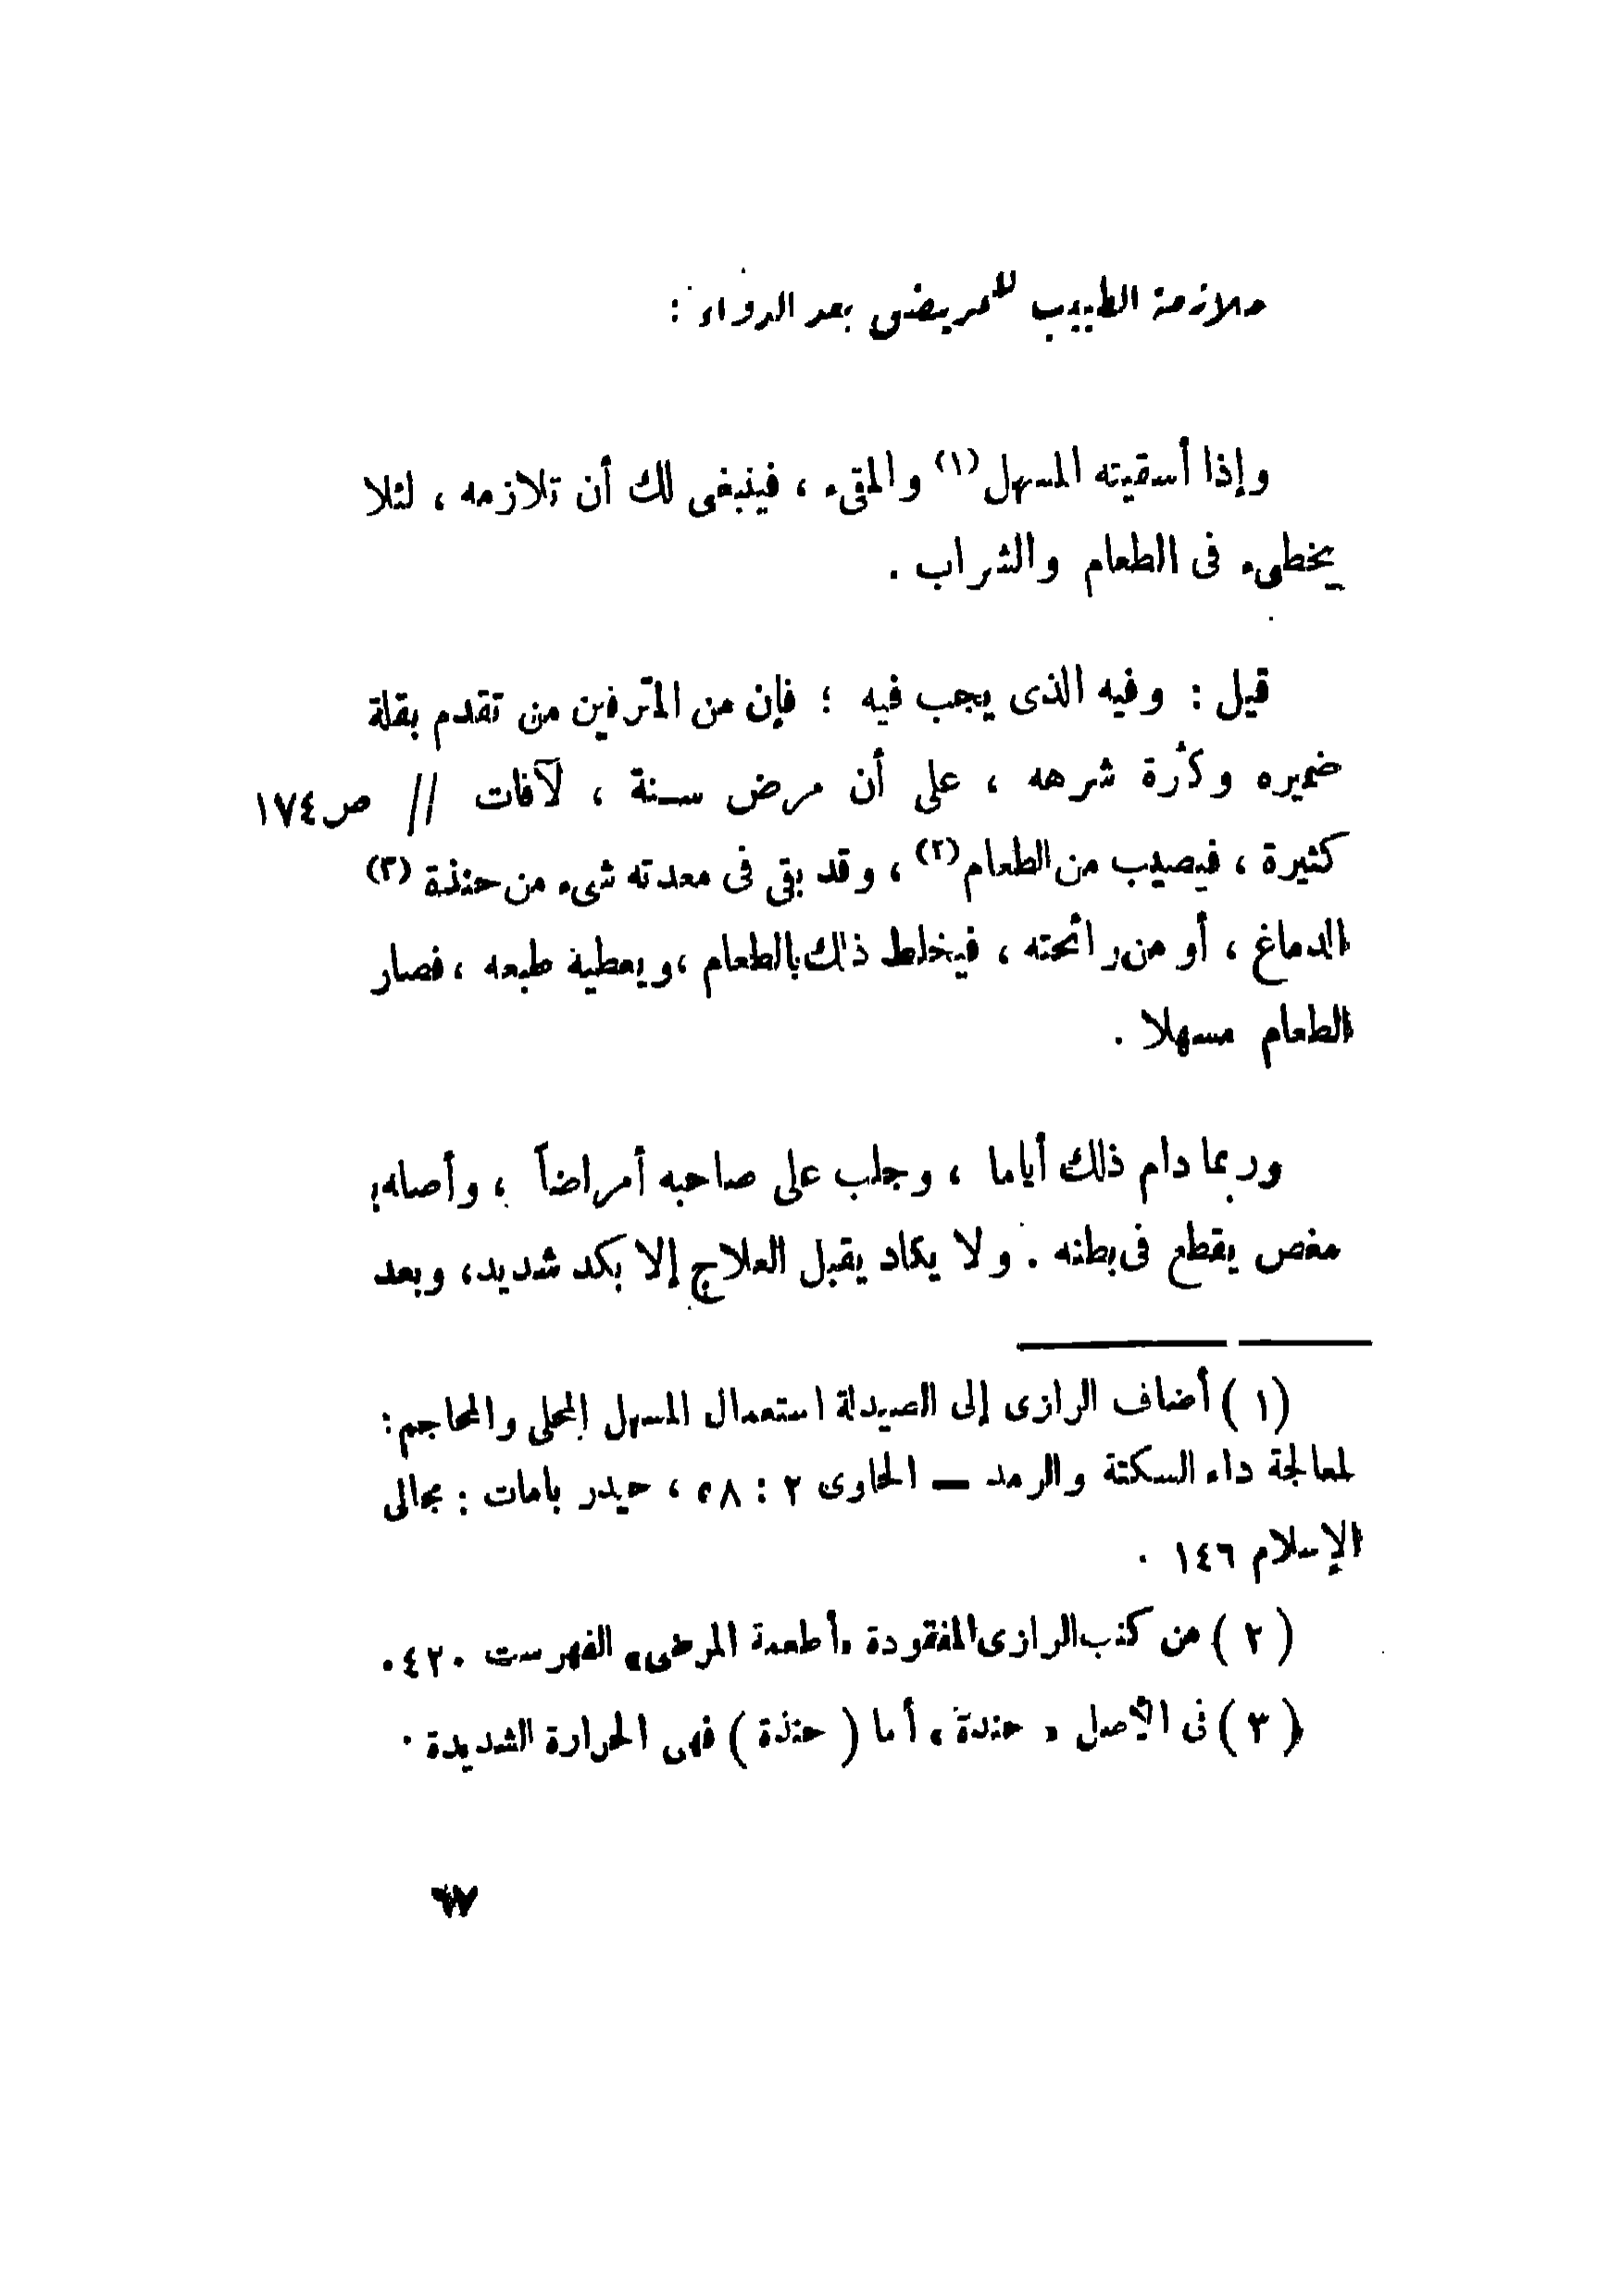 ملازمة الطبيب للمريض بعد الدواء :
وإذا أسقيته المسهل (١) والمقىء ، فينبغى لك أن تلازمه ، لئلا
يخطىء فى الطعام والشراب .
قيل : وفيه الذى يجب فيه ؛ فإن من المترفين من تقدم بقلة
ضميره وكثرة شرهه ، على أن مرض سنة ، لآفات // ص ١٧٤
كثيرة ، فيصيب من الطعام (٢) ، وقد بقى فى معدته شىء من حنذة (٣)
الدماغ ، أو من رائحته ، فيخلط ذلك بالطعام ، ويعطية طبعه ، فصار
الطعام مسهلا .
وربما دام ذلك أياما ، وجلب على صاحبه أمراضاً ، وأصابه
مغص يقطع فى بطنه . ولا يكاد يقبل العلاج إلا بكد شديد ، وبعد
(١) أضاف الرازى إلى الصيدلة استعمال المسهل المحلى والمحاجم :
لمعالجة داء السكتة والرمد — الحاوى ٢ : ٥٨ ، حيدر بامات : مجالى
الإسلام ١٤٦ .
(٢) من كتب الرازى المفقودة «أطعمة المرضى» الفهرست ٤٢٠ .
(٣) فى الأصل « حندة » أما ( حنذة ) فهى الحرارة الشديدة .
٦٧